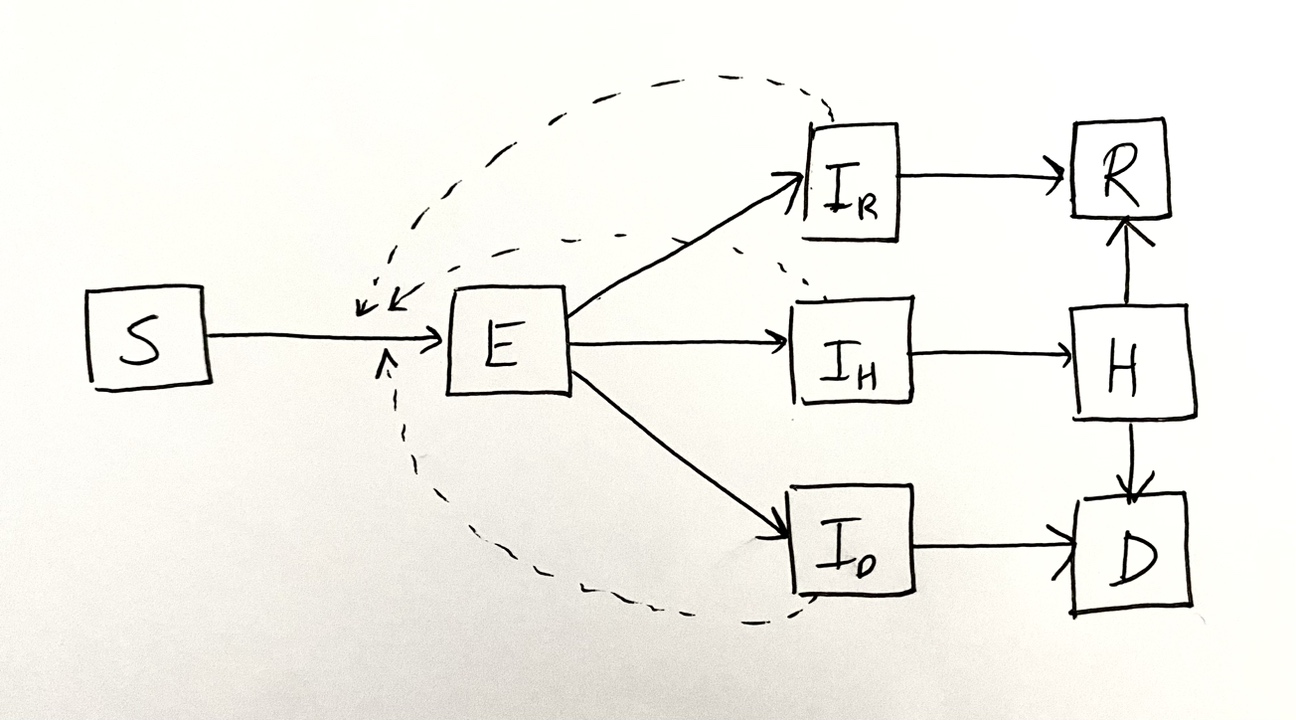 S
E
I_R
I_H
I_D
R
H
D